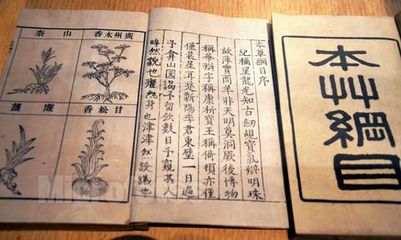 本艸綱目
本草綱目序
紀稱望龍光知古劍覘寶氣辨明珠
故萍實商羊非天明莫洞厥後博物
稱華辯字稱康析寶玉稱倚頓亦僅
僅晨星耳楚蘄陽李君東璧一日過
予弇山園謁予留飲數日予窺其人
睟然貌也癯然身也津津然譚議也
廣州木香
山柰
甘松香
廉薑